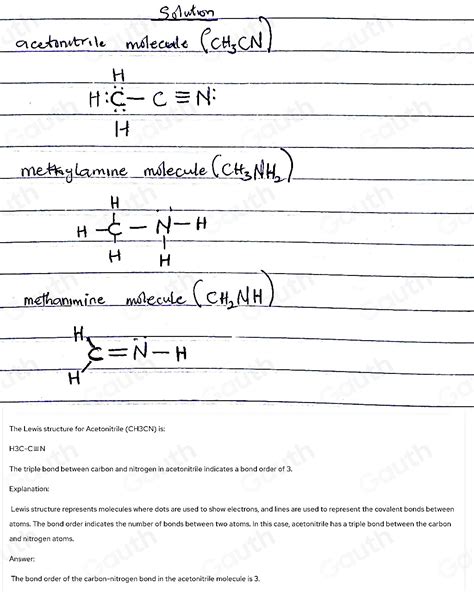 Solution
acetonitrile molecule (CH₃CN)
H
H:C̈ — C ≡ N:
H
methylamine molecule (CH₃NH₂)
H
H — C — N̈ — H
H H
methanimine molecule (CH₂NH)
H
C = N̈ — H
H
The Lewis structure for Acetonitrile (CH3CN) is:
H3C-C≡N
The triple bond between carbon and nitrogen in acetonitrile indicates a bond order of 3.
Explanation:
Lewis structure represents molecules where dots are used to show electrons, and lines are used to represent the covalent bonds between
atoms. The bond order indicates the number of bonds between two atoms. In this case, acetonitrile has a triple bond between the carbon
and nitrogen atoms.
Answer:
The bond order of the carbon-nitrogen bond in the acetonitrile molecule is 3.